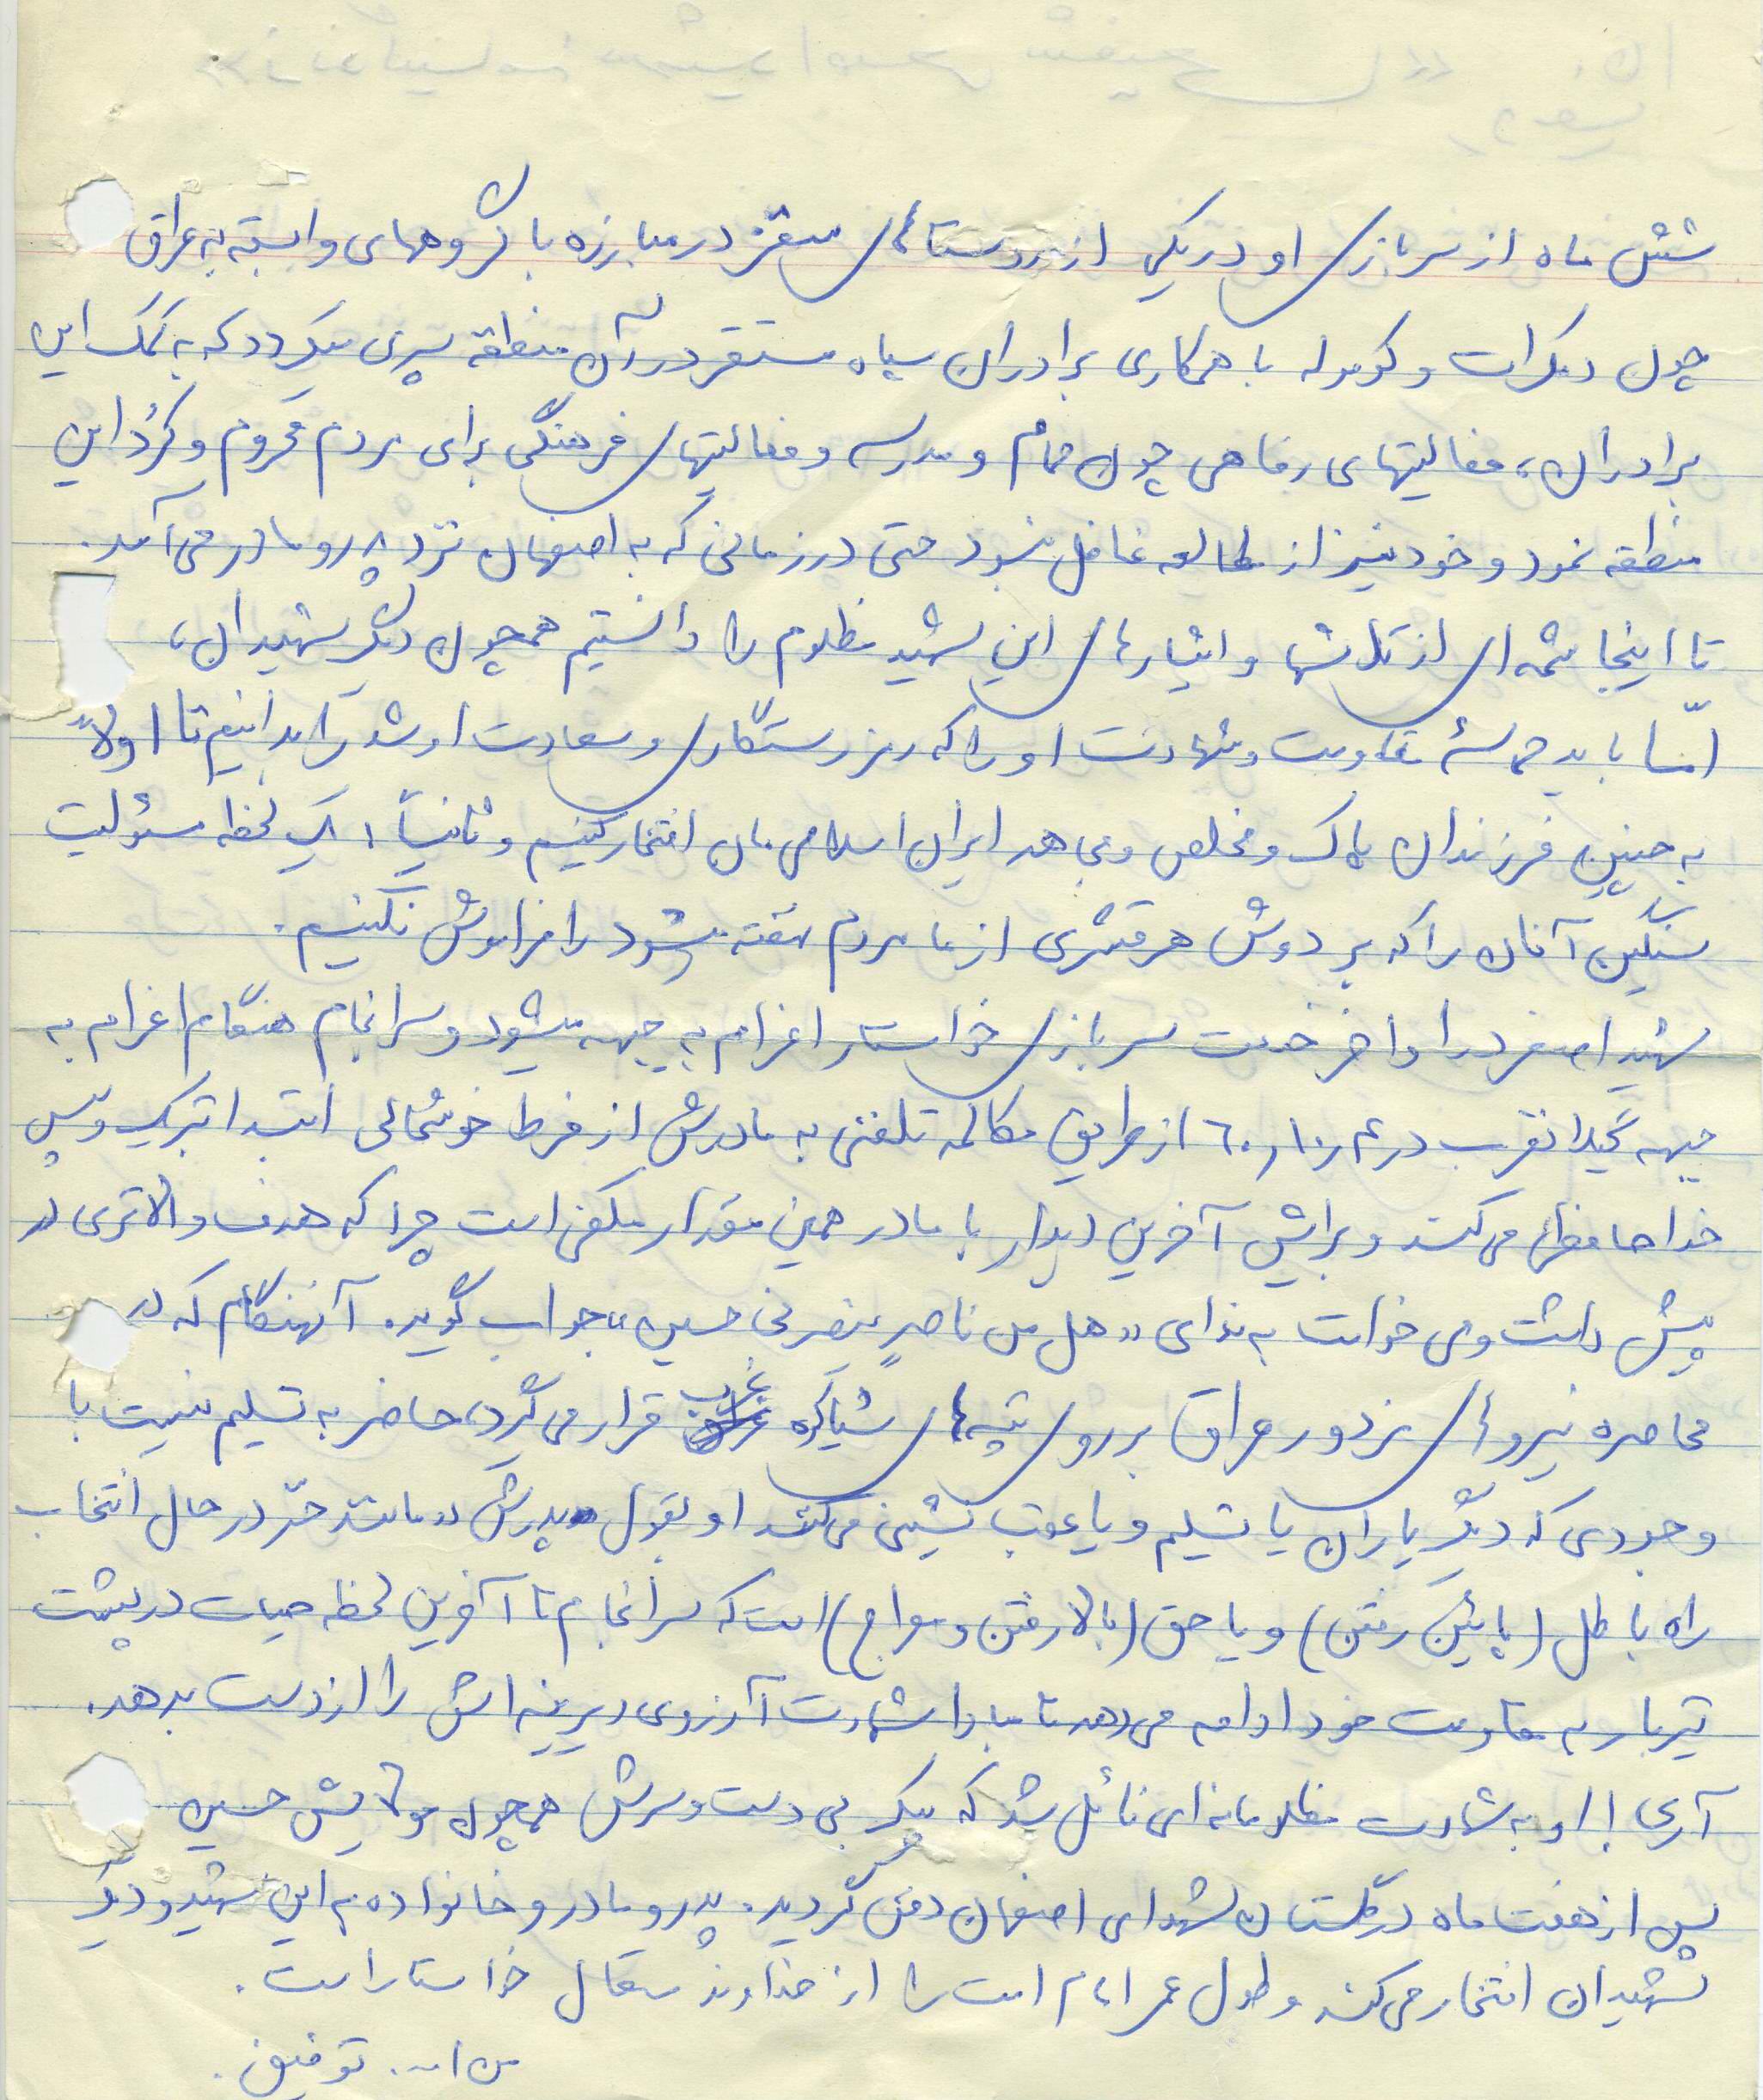 شش ماه از سربازی او در یکی از روستاهای سقز در مبارزه با گروههای وابسته به عراق
چون دمکرات و کومله با همکاری برادران سپاه مستقر در آن منطقه سپری میگردد که به کمک این
برادران، فعالیتهای رفاهی چون حمام و مدرسه و فعالیتهای فرهنگی برای مردم محروم و کرُد این
منطقه نمود و خود نیز از مطالعه غافل نبود حتی در زمانی که به اصفهان نزد پدر و مادر می‌آمد.
تا اینجا شمه‌ای از تلاشها و ایثارهای این شهید مظلوم را دانستیم همچون دیگر شهیدان،
امّا باید حماسهٔ مقاومت و شهادت او را که رمز رستگاری و سعادت او شد را بدانیم تا اولاً
به چنین فرزندان پاک و مخلص و مجاهد ایران اسلامی‌مان افتخار کنیم و ثانیاً، یک لحظه مسئولیت
سنگین آنان را که بر دوش هر قشری از ما مردم نهفته میشود را فراموش نکنیم.
شهید اصغر در اواخر خدمت سربازی خواستار اعزام به جبهه میشود و سرانجام هنگام اعزام به
جبهه گیلانغرب در ۶۰٫۱۰٫۴ از طریق مکالمه تلفنی به مادرش از فرط خوشحالی ابتدا تبریک و سپس
خداحافظی می‌کند و برایش آخرین دیدار با مادر همین مقدار مکفی است چرا که هدف والاتری در
پیش داشت و می خواست به ندای «هل من ناصرٍ ینصرنی حسین» جواب گوید. آنهنگام که در
محاصره نیروهای مزدور عراق بر روی تپه‌های شیاکوه غرب قرار می‌گیرد، حاضر به تسلیم نیست با
وجودی که دیگر یاران یا تسلیم و یا عقب نشینی می‌کنند او بقول پدرش «مانند حرّ در حال انتخاب
راه باطل (پائین رفتن) و یا حق (بالا رفتن و معراج) است که سرانجام تا آخرین لحظه حیات در پشت
تیربار به مقاومت خود ادامه می‌دهد تا مبادا شهادت آرزوی دیرینه‌اش را از دست بدهد.
آری! او به شهادت مظلومانه‌ای نائل شد که پیکر بی دست و سرش همچون مولایش حسین
پس از هفت ماه در گلستان شهدای اصفهان دفن گردید. پدر و مادر و خانواده به این شهید و دیگر
شهیدان افتخار می‌کند و طول عمر امام امت را از خداوند متعال خواستار است.
من ا... توفیق.